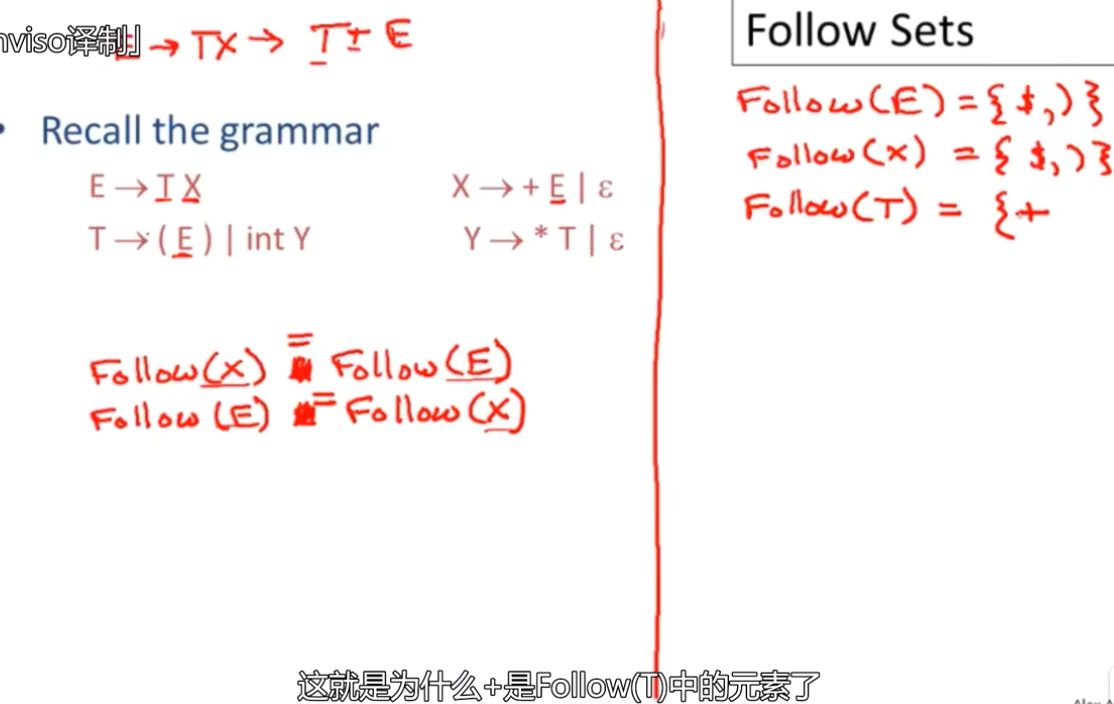 nviso译制」
E → TX → T + E
Follow Sets
• Recall the grammar
E → T X    X → + E | ε
T → ( E ) | int Y    Y → * T | ε
Follow(X) = Follow(E)
Follow(E) = Follow(X)
Follow(E) = { $, ) }
Follow(X) = { $, ) }
Follow(T) = { +
这就是为什么+是Follow(T)中的元素了